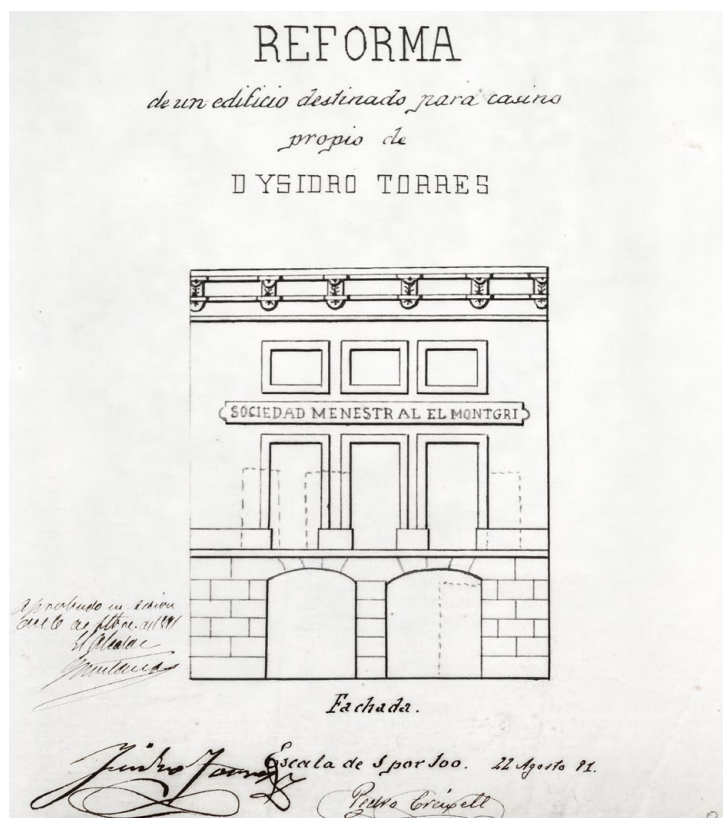 REFORMA
de un edificio destinado para casino
propio de
D YSIDRO TORRES
SOCIEDAD MENESTRAL EL MONTGRI
aprobado en sesion
El Alcalde
Fachada.
Escala de 1 por 100. 22 Agosto 91.
Ysidro Torres
Pedro Creixell